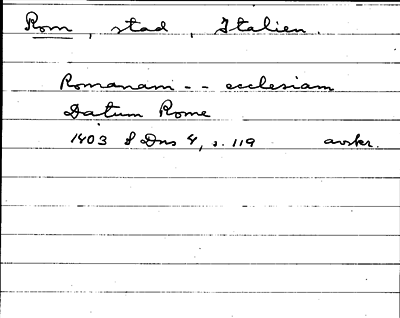 Rom, stad, Italien.
Romanam - - ecclesiam
Datum Rome
1403 8 Dns 4, s. 119 avskr.